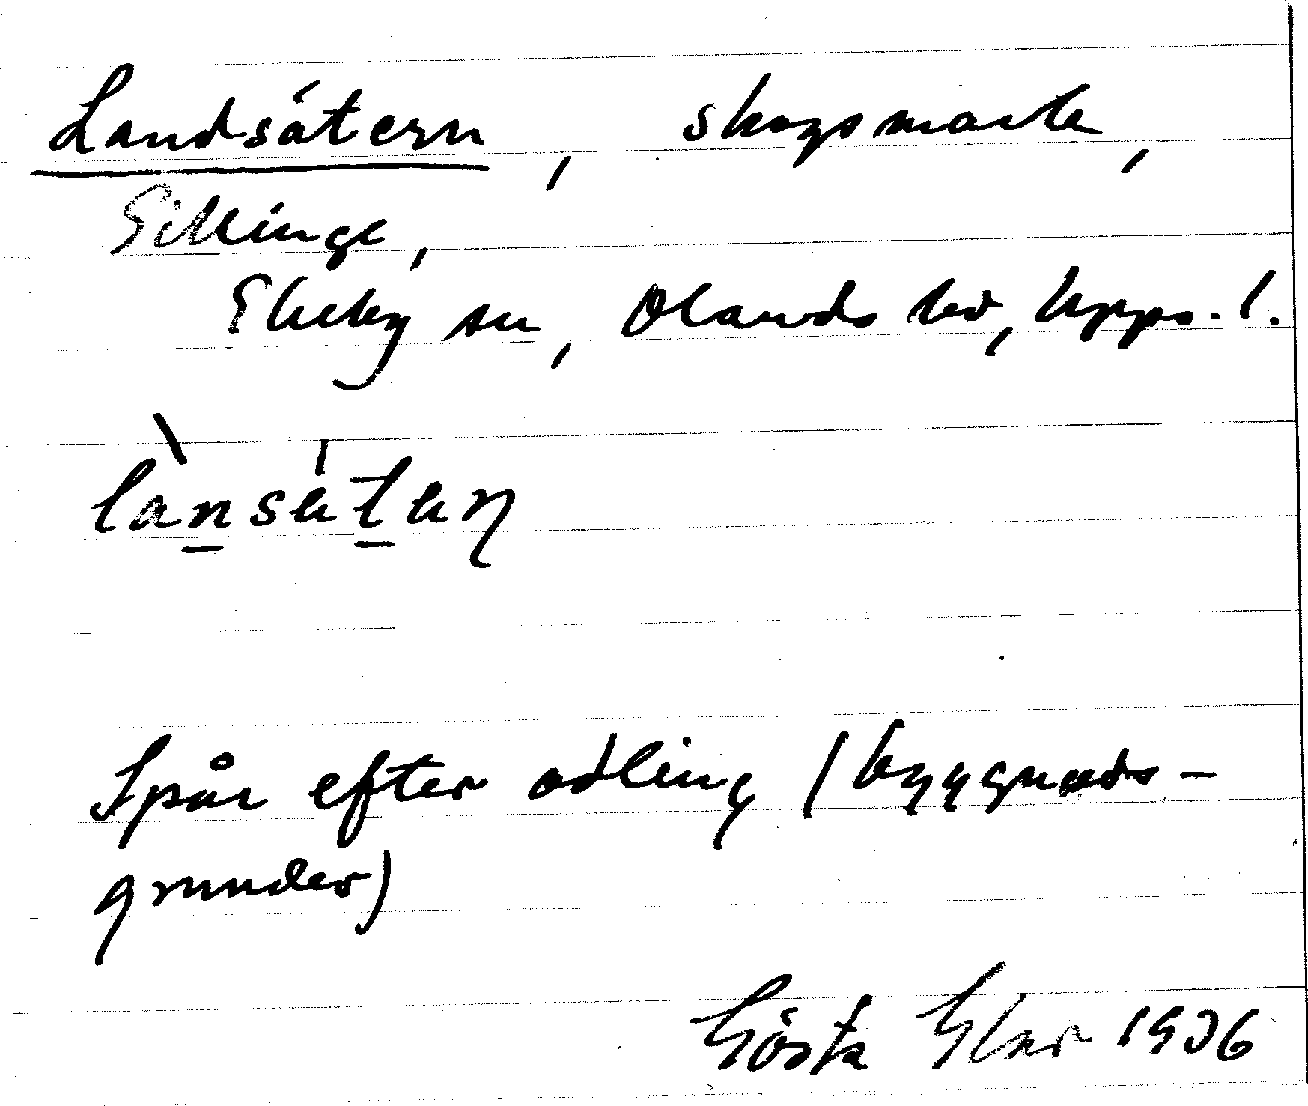 Landsätern, skogsmark,
Gillinge,
Ekeby sn, Olands hd, Upps. l.
Spår efter odling (byggnads-
grunder)
Gösta 1936